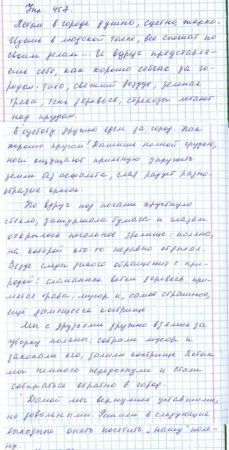 Упр. 457.
Летом в городе душно, суетно, жарко.
Идешь в людской толпе, все спешат по
своим делам... И вдруг представля-
ешь себе, как хорошо сейчас за го-
родом: тихо, свежий воздух, зеленая
трава, тень деревьев, стрекозы летают
над прудом.
В субботу дружно едем за город. Как
хорошо кругом! Дышишь полной грудью,
ноги ощущают приятную упругость
земли без асфальта, глаз радует разно-
образие красок.
Но вдруг под ногами хрустнуло
стекло, зашуршала бумага и глазам
открылось печальное зрелище: поляна,
на которой кто-то недавно отдыхал.
Везде следы дикого обращения с при-
родой: сломанные ветки деревьев, при-
мятая трава, мусор и, самое страшное,
еще дымящееся кострище.
Мы с друзьями дружно взялись за
уборку поляны: собрали мусор и
закопали его, залили кострище. Потом
мы немного передохнули и стали
собираться обратно в город.
Домой мы вернулись уставшими,
но довольными. Решили в следующие
выходные опять посетить „нашу" поля-
ну.